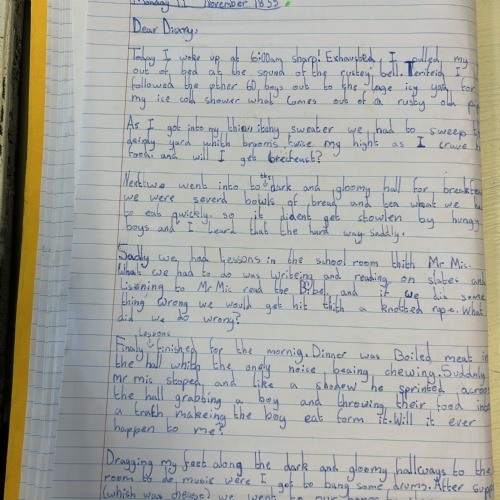 Monday 11 November 1833
Dear Diary,
Today I woke up at 6:00am sharp! Exhausted, I pulled my
out of bed at the sound of the rustey bell. Terrifeid I
followed the other 60 boys out to the large icy yard for
my ice cold shower what comes out of a rusty old
As I got into my thin itchy sweater we had to sweep
yard which brooms twice my hight as I crave
food and will I get brecfeast?
Next we went into to the dark and gloomy hall for
we were severd bowls of bread and tea what we
to eat quickly so it dident get stowlen by hungy
boys and I leard that the hard way. Saddly.
Sadly we had lessons in the school room thith Mr Mis.
What we had to do was writeing and reading on slates and
Lisoning to Mr Mis read the Bibel and if we did some
thing wrong we would get hit thith a knotted rope. What
did we do wrong?
Lessons
Finaly finished for the mornig. Dinner was Boiled meat in
the hall which the only noise beaing chewing. Suddenly
Mr mis stoped and like a shadow he sprinted across
the hall grabbing a boy and throwing their food into
a trath makeing the boy eat form it. Will it ever
happen to me?
Dragging my feet along the dark and gloomy hallways to the
room to do music were I got to bang some drums. After
(which was cheese) we went to our